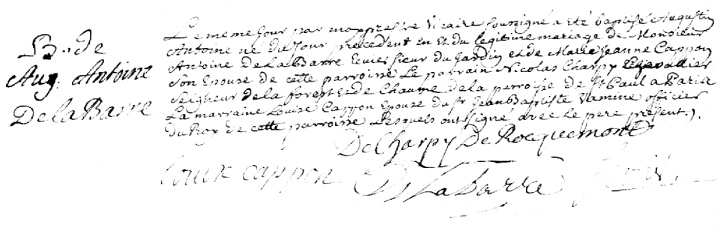 B. de
Aug. Antoine
De la Barre
Le même jour par moy prestre Vicaire soussigné a été baptisé Augustin
Antoine né du jour précédent en et du légitime mariage de Monsieur
Antoine De la Barre Ecuier sieur du Jardin et de Marie Jeanne Cappon
son Epouse de cette parroisse Le parrain Nicolas Charpy Chevallier
Seigneur de la forest et de Chautre de la parroisse de St Paul a Paris
La marraine Louise Cappon Epouse du Sr Jean Baptiste Vamine officier
du Roy de cette parroisse Lesquels ont signé avec le pere présent.
De Charpy De Rocquemont
Louise cappon De La barre